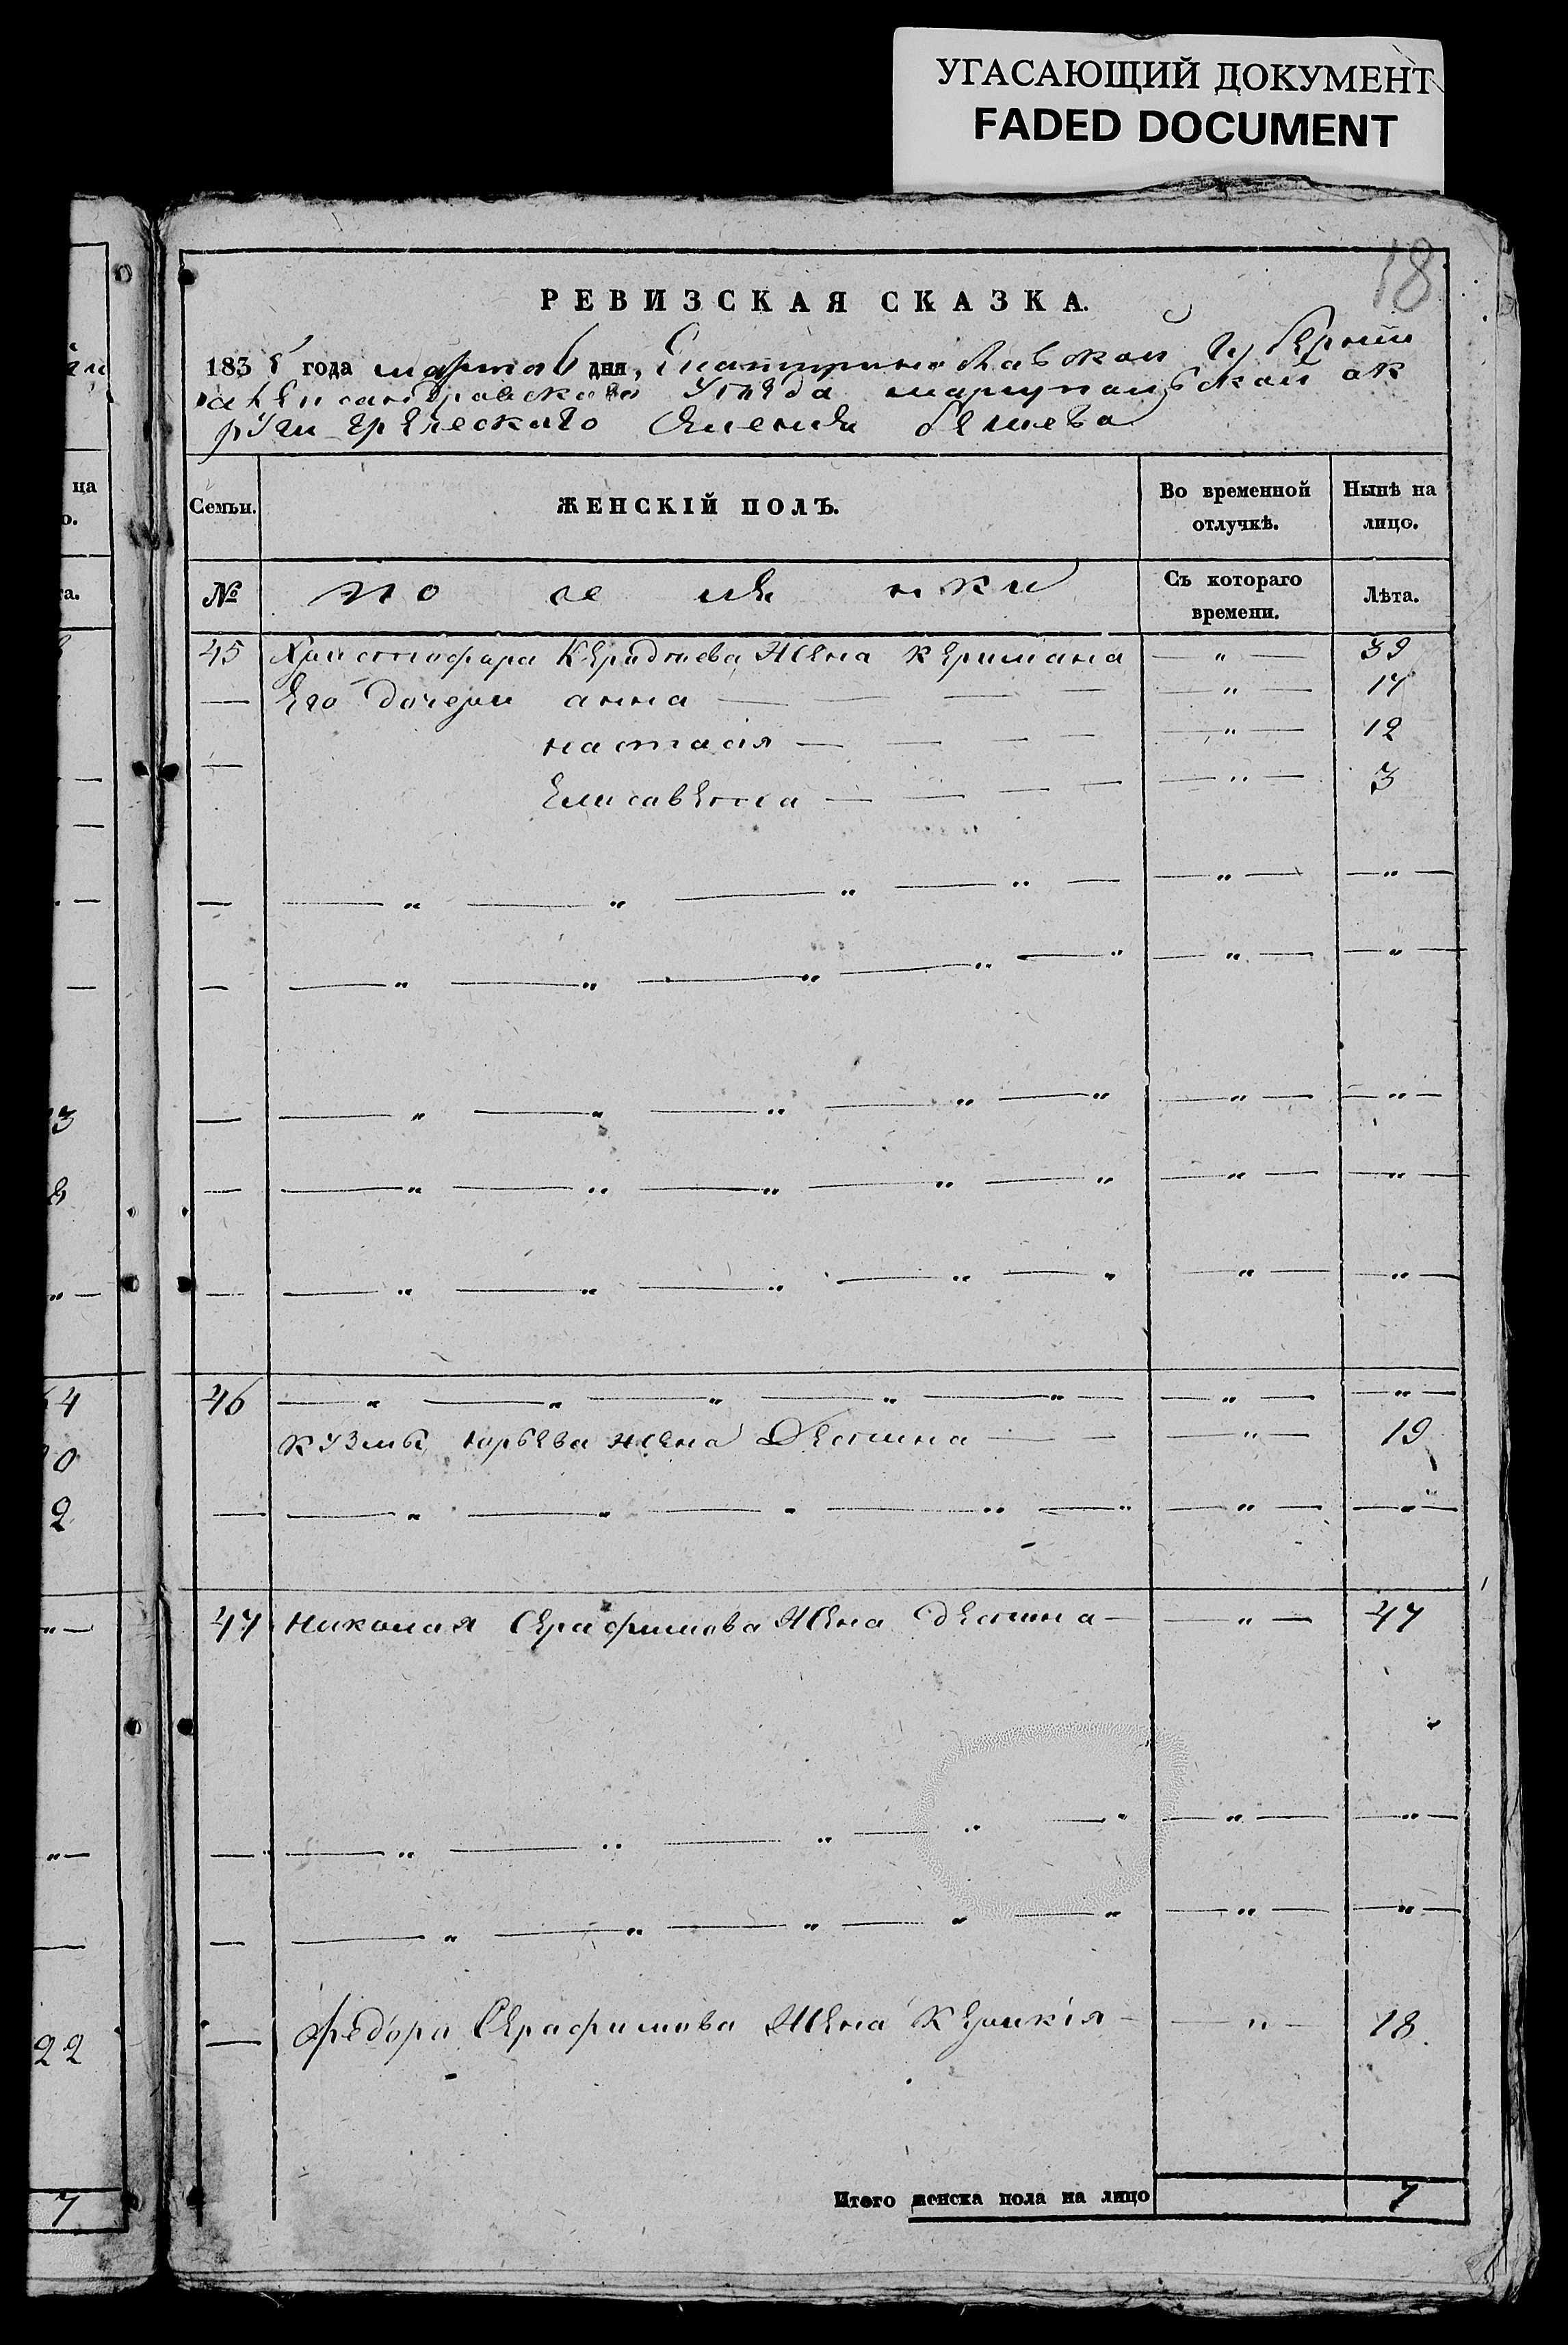 УГАСАЮЩИЙ ДОКУМЕНТ
FADED DOCUMENT
18
РЕВИЗСКАЯ СКАЗКА.
1835 года марта 6 дня, Екатеринославской Губернии
Александровскаго Уезда мариупольской ок
руги греческаго селения бешева
Семьи.
ЖЕНСКІЙ ПОЛЪ.
Во временной отлучкѣ.
Нынѣ на лицо.
№
поселянки
Съ котораго времени.
Лѣта.
45 Христофора Жена 39
— Его дочери анна — — — — " — 17
— настасія — — — — — " — 12
Елисавета — — — — — " — 3
46 — " — " — " — " — " — — " — — " —
Кузмы юрьева жена Деспина — — — " — 19
47 Николая Серафимова Жена деспина — — " — 47
— федора Серафимова Жена Керикія — — " — 18
Итого женска пола на лицо 7
ца
о.
та.
3
8
4
0
2
22
7